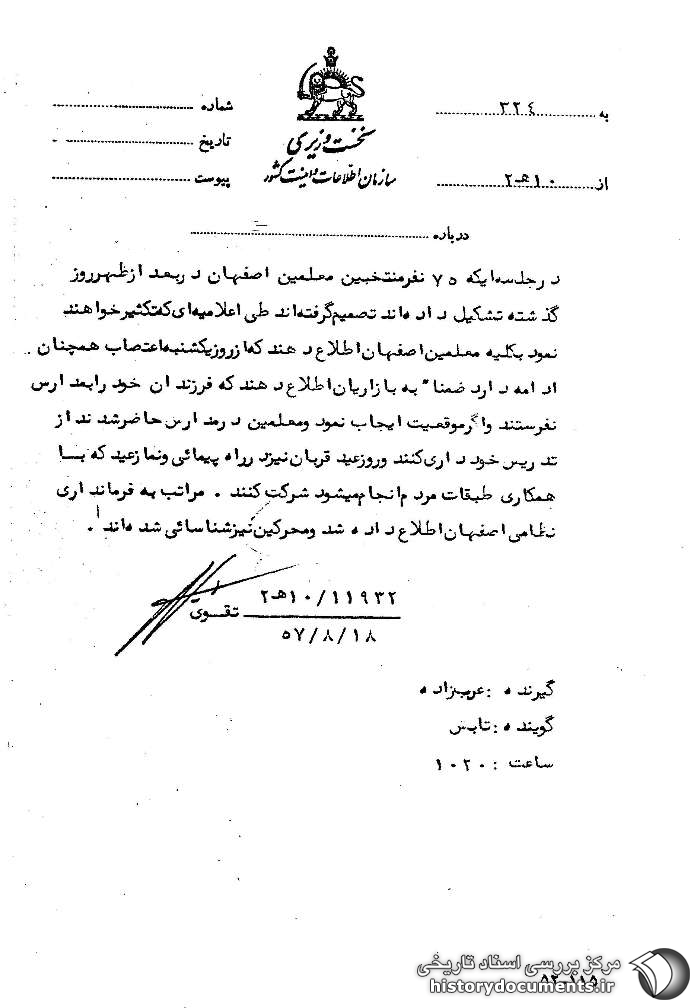 نخست وزیری
سازمان اطلاعات و امنیت کشور
به ۳۲٤
از ۱۰هـ۲
شماره
تاریخ
پیوست
درباره
در جلسه ایکه ۷۵ نفر منتخبین معلمین اصفهان در بعد از ظهر روز
گذشته تشکیل داده اند تصمیم گرفته اند طی اعلامیه ای که تکثیر خواهند
نمود بکلیه معلمین اصفهان اطلاع دهند که از روز یکشنبه اعتصاب همچنان
ادامه دارد ضمنا" به بازاریان اطلاع دهند که فرزندان خود را بمدارس
نفرستند و اگر موقعیت ایجاب نمود و معلمین در مدارس حاضر شدند از
تدریس خود داری کنند و روز عید قربان نیز در راه پیمائی و نماز عید که با
همکاری طبقات مردم انجام میشود شرکت کنند . مراتب به فرمانداری
نظامی اصفهان اطلاع داده شد و محرکین نیز شناسائی شده اند .
۱۰/۱۱۹۳۲هـ۲
تقوی
۵۷/۸/۱۸
گیرنده : عربزاده
گوینده : تابش
ساعت : ۱۰۲۰
۸۲-۱۱۵
مرکز بررسی اسناد تاریخی
historydocuments.ir